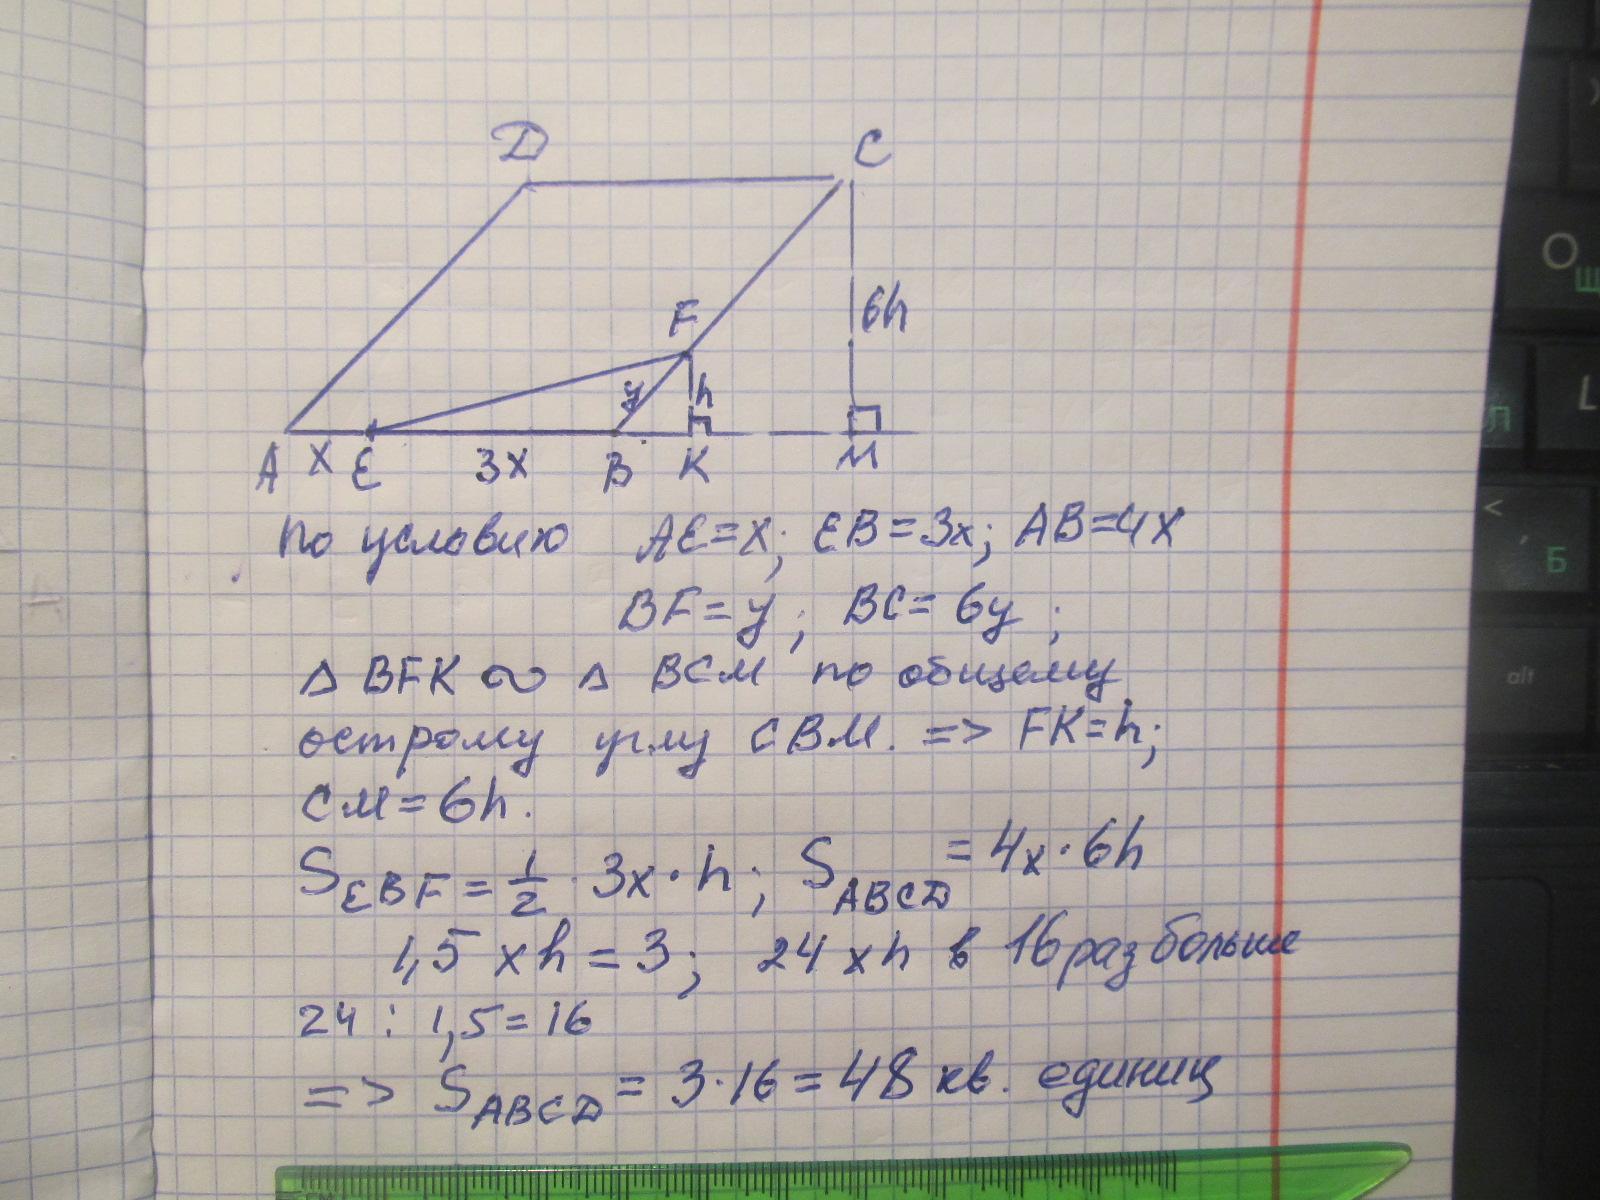 D C
F 6h
y h
A x E 3x B K M
По условию AE=x; EB=3x; AB=4x
BF=y; BC=6y;
Δ BFK ∾ Δ BCM по общему
острому углу CBM. => FK=h;
CM=6h.
S_EBF = 1/2 · 3x · h; S_ABCD = 4x·6h
1,5 xh = 3; 24 xh в 16 раз больше
24 : 1,5 = 16
=> S_ABCD = 3·16 = 48 кв. единиц
О
Щ
L
Л
<
Б
alt
см